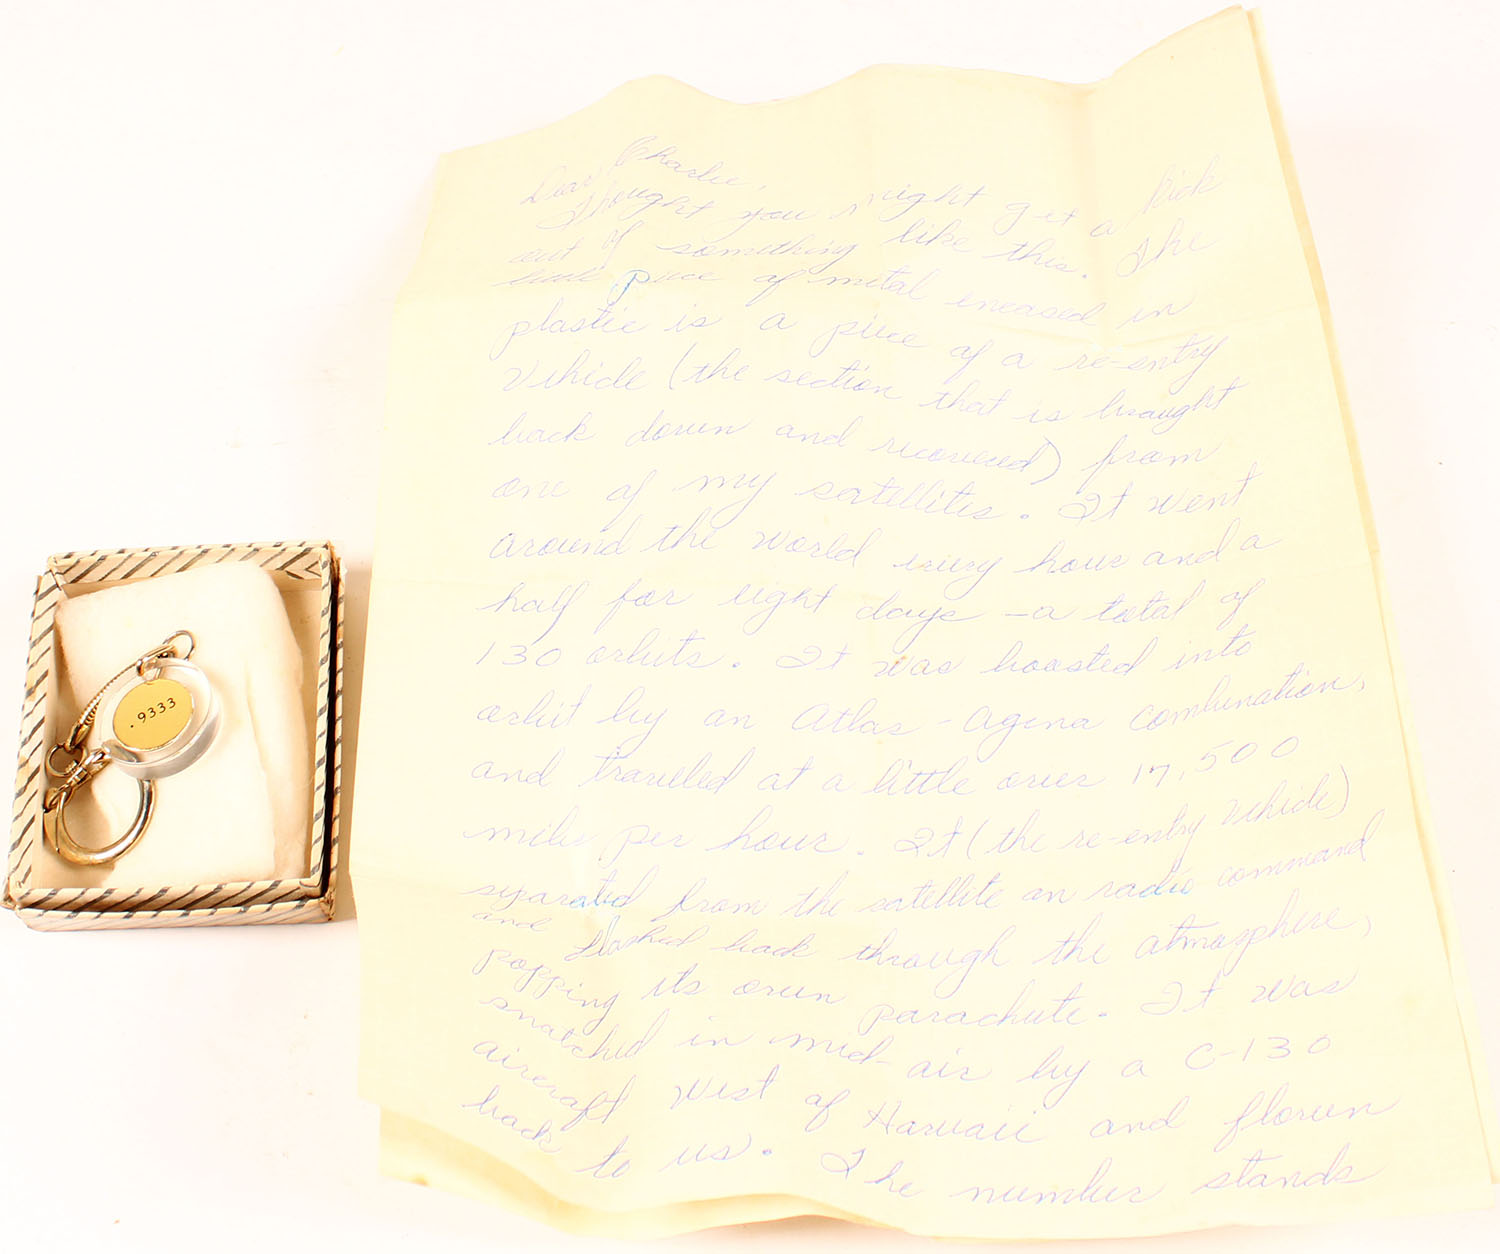 .9333
Dear Charlie,
Thought you might get a kick
out of something like this. The
little piece of metal encased in
plastic is a piece of a re-entry
vehicle (the section that is brought
back down and recovered) from
one of my satellites. It went
around the world every hour and a
half for eight days - a total of
130 orbits. It was boosted into
orbit by an Atlas-Agena combination,
and traveled at a little over 17,500
miles per hour. It (the re-entry vehicle)
separated from the satellite on radio command
and flashed back through the atmosphere,
popping its own parachute. It was
snatched in mid-air by a C-130
aircraft West of Hawaii and flown
back to us. The number stands